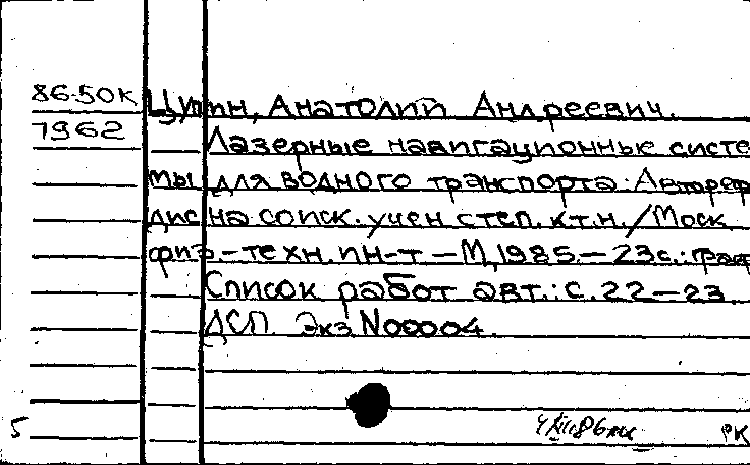 86-50к Анатолий Андреевич.
1962 Лазерные навигационные систе
мы для водного транспорта: Автореф
дис на соиск. учен степ. к.т.н. / Моск
физ-техн. ин-т - М, 1985. - 23с.: граф
Список работ авт.: с. 22-23
ДСП Экз N00004.
5 РК